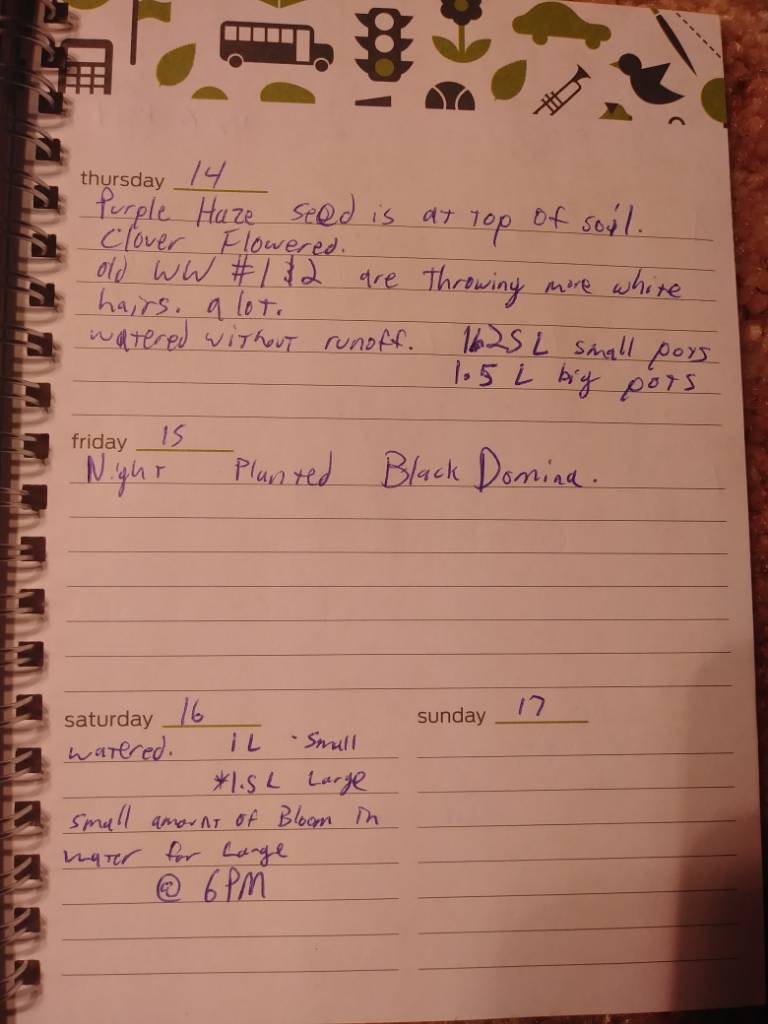 thursday 14
Purple Haze seed is at top of soil.
Clover Flowered.
old WW #1 & 2 are throwing more white
hairs. a lot.
watered without runoff. 1.625 L small pots
1.5 L big pots
friday 15
Night Planted Black Domina.
saturday 16
watered. 1 L · Small
*1.5 L Large
small amount of Bloom in
water for Large
@ 6PM
sunday 17